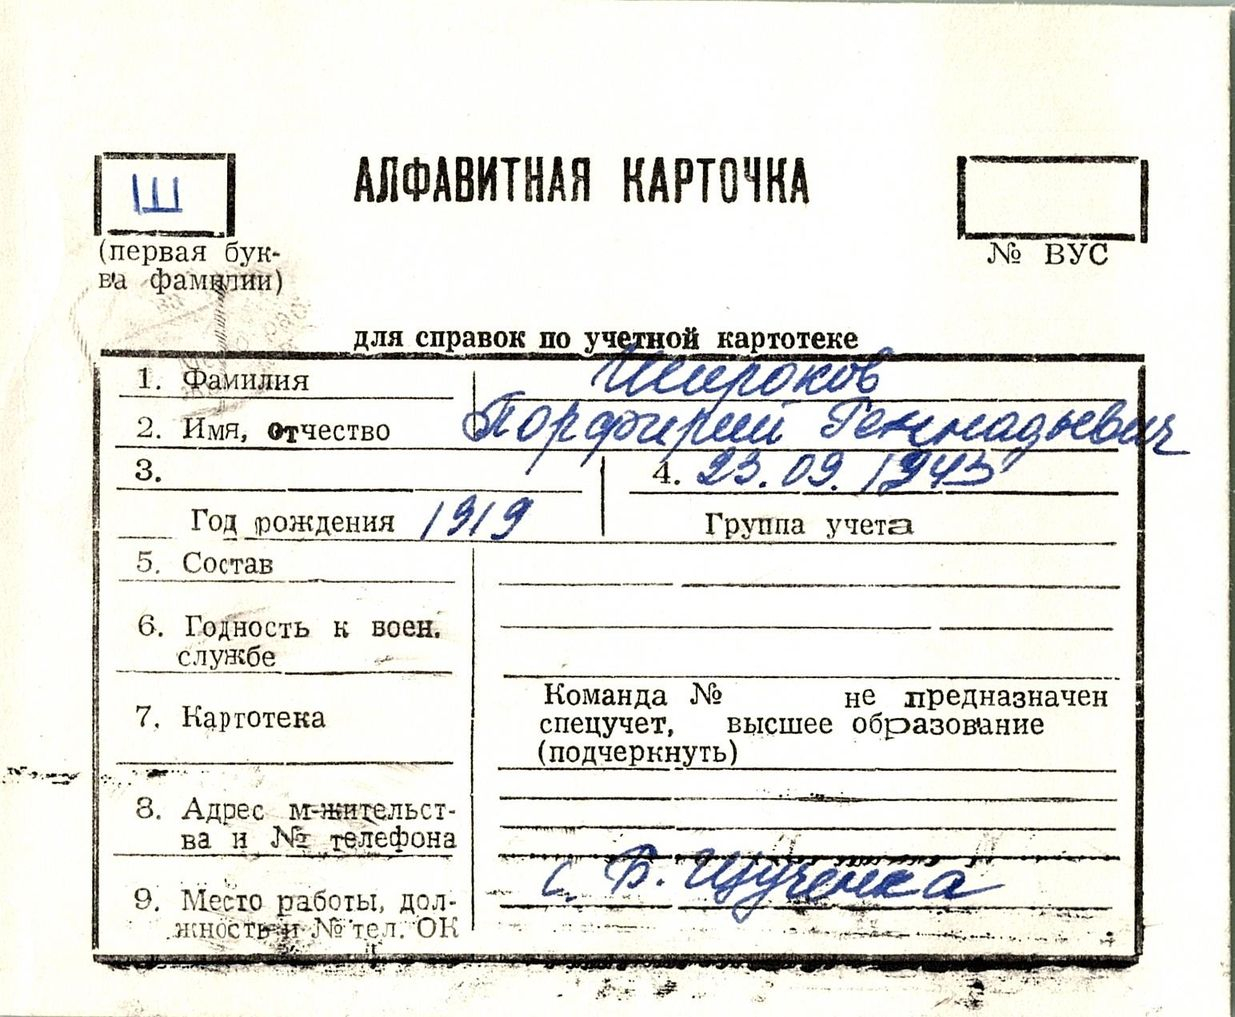 Ш
АЛФАВИТНАЯ КАРТОЧКА
(первая бук-
ва фамилии)
№ ВУС
для справок по учетной картотеке
1. Фамилия Широков
2. Имя, отчество Порфирий Геннадьевич
3.
4. 23.09.1943
Год рождения 1919
Группа учета
5. Состав
6. Годность к воен.
службе
7. Картотека
Команда № не предназначен
спецучет, высшее образование
(подчеркнуть)
8. Адрес м-жительст-
ва и № телефона
с. Б. Щученка
9. Место работы, дол-
жность и № тел. ОК